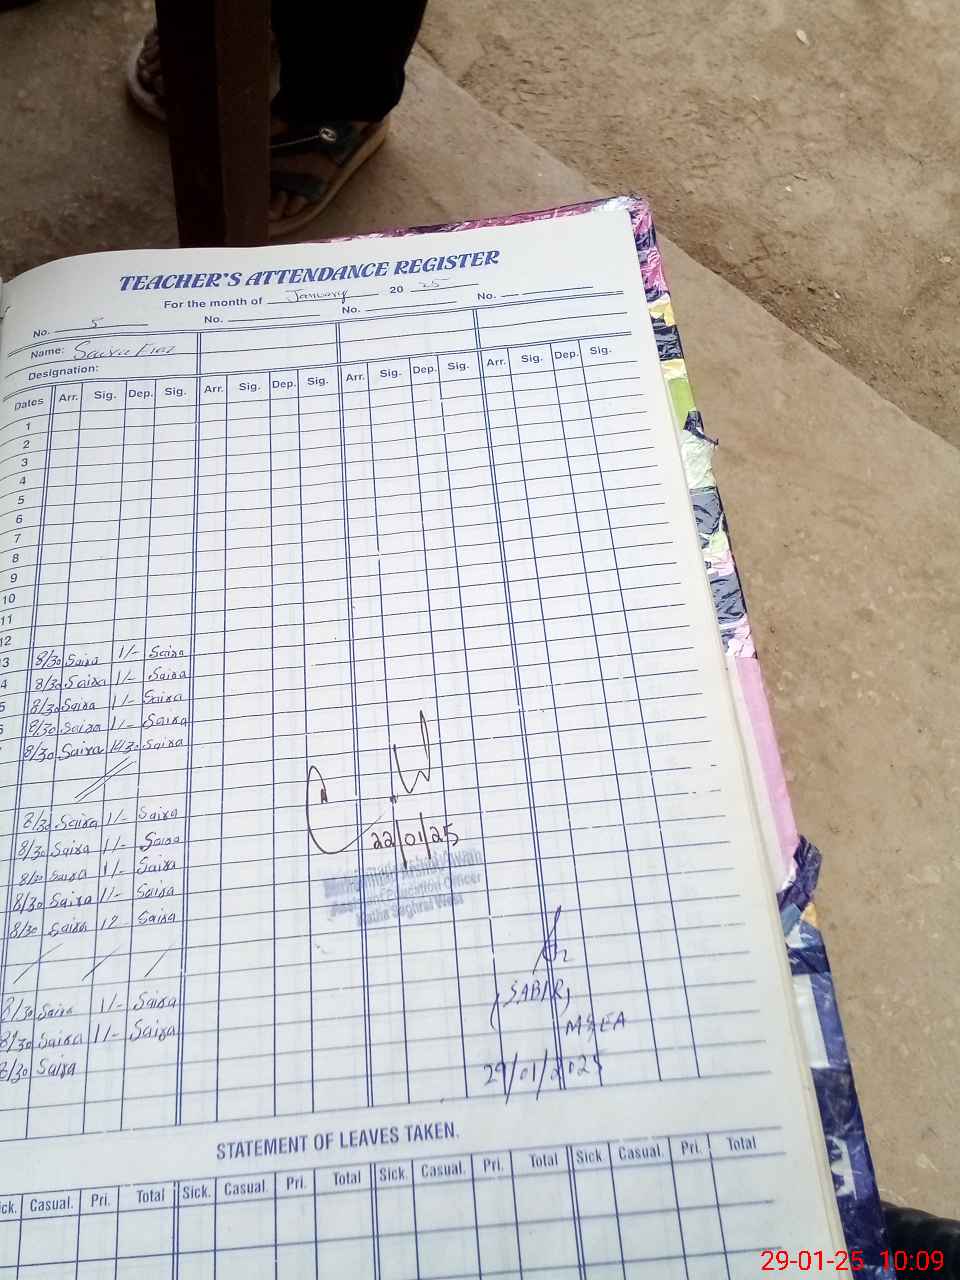 TEACHER'S ATTENDANCE REGISTER
For the month of January 2025
No. 5 No. No. No.
Name: Saira
Designation:
Dates Arr. Sig. Dep. Sig. Arr. Sig. Dep. Sig. Arr. Sig. Dep. Sig. Arr. Sig. Dep. Sig.
1
2
3
4
5
6
7
8
9
10
11
12
3 8/30 Saira 1/- Saira
4 8/30 Saira 1/- Saira
5 8/30 Saira 1/- Saira
6 8/30 Saira 1/- Saira
8/30 Saira 12/30 Saira
8/30 Saira 1/- Saira
8/30 Saira 1/- Saira
8/30 Saira 1/- Saira
8/30 Saira 1/- Saira
8/30 Saira 12 Saira
22/01/25
Assistant Education Officer
8/30 Saira 1/- Saira
8/30 Saira 1/- Saira
8/30 Saira
(SABIR)
MEA
29/01/2025
STATEMENT OF LEAVES TAKEN.
ick. Casual. Pri. Total Sick. Casual. Pri. Total Sick. Casual. Pri. Total Sick Casual. Pri. Total
29-01-25 10:09